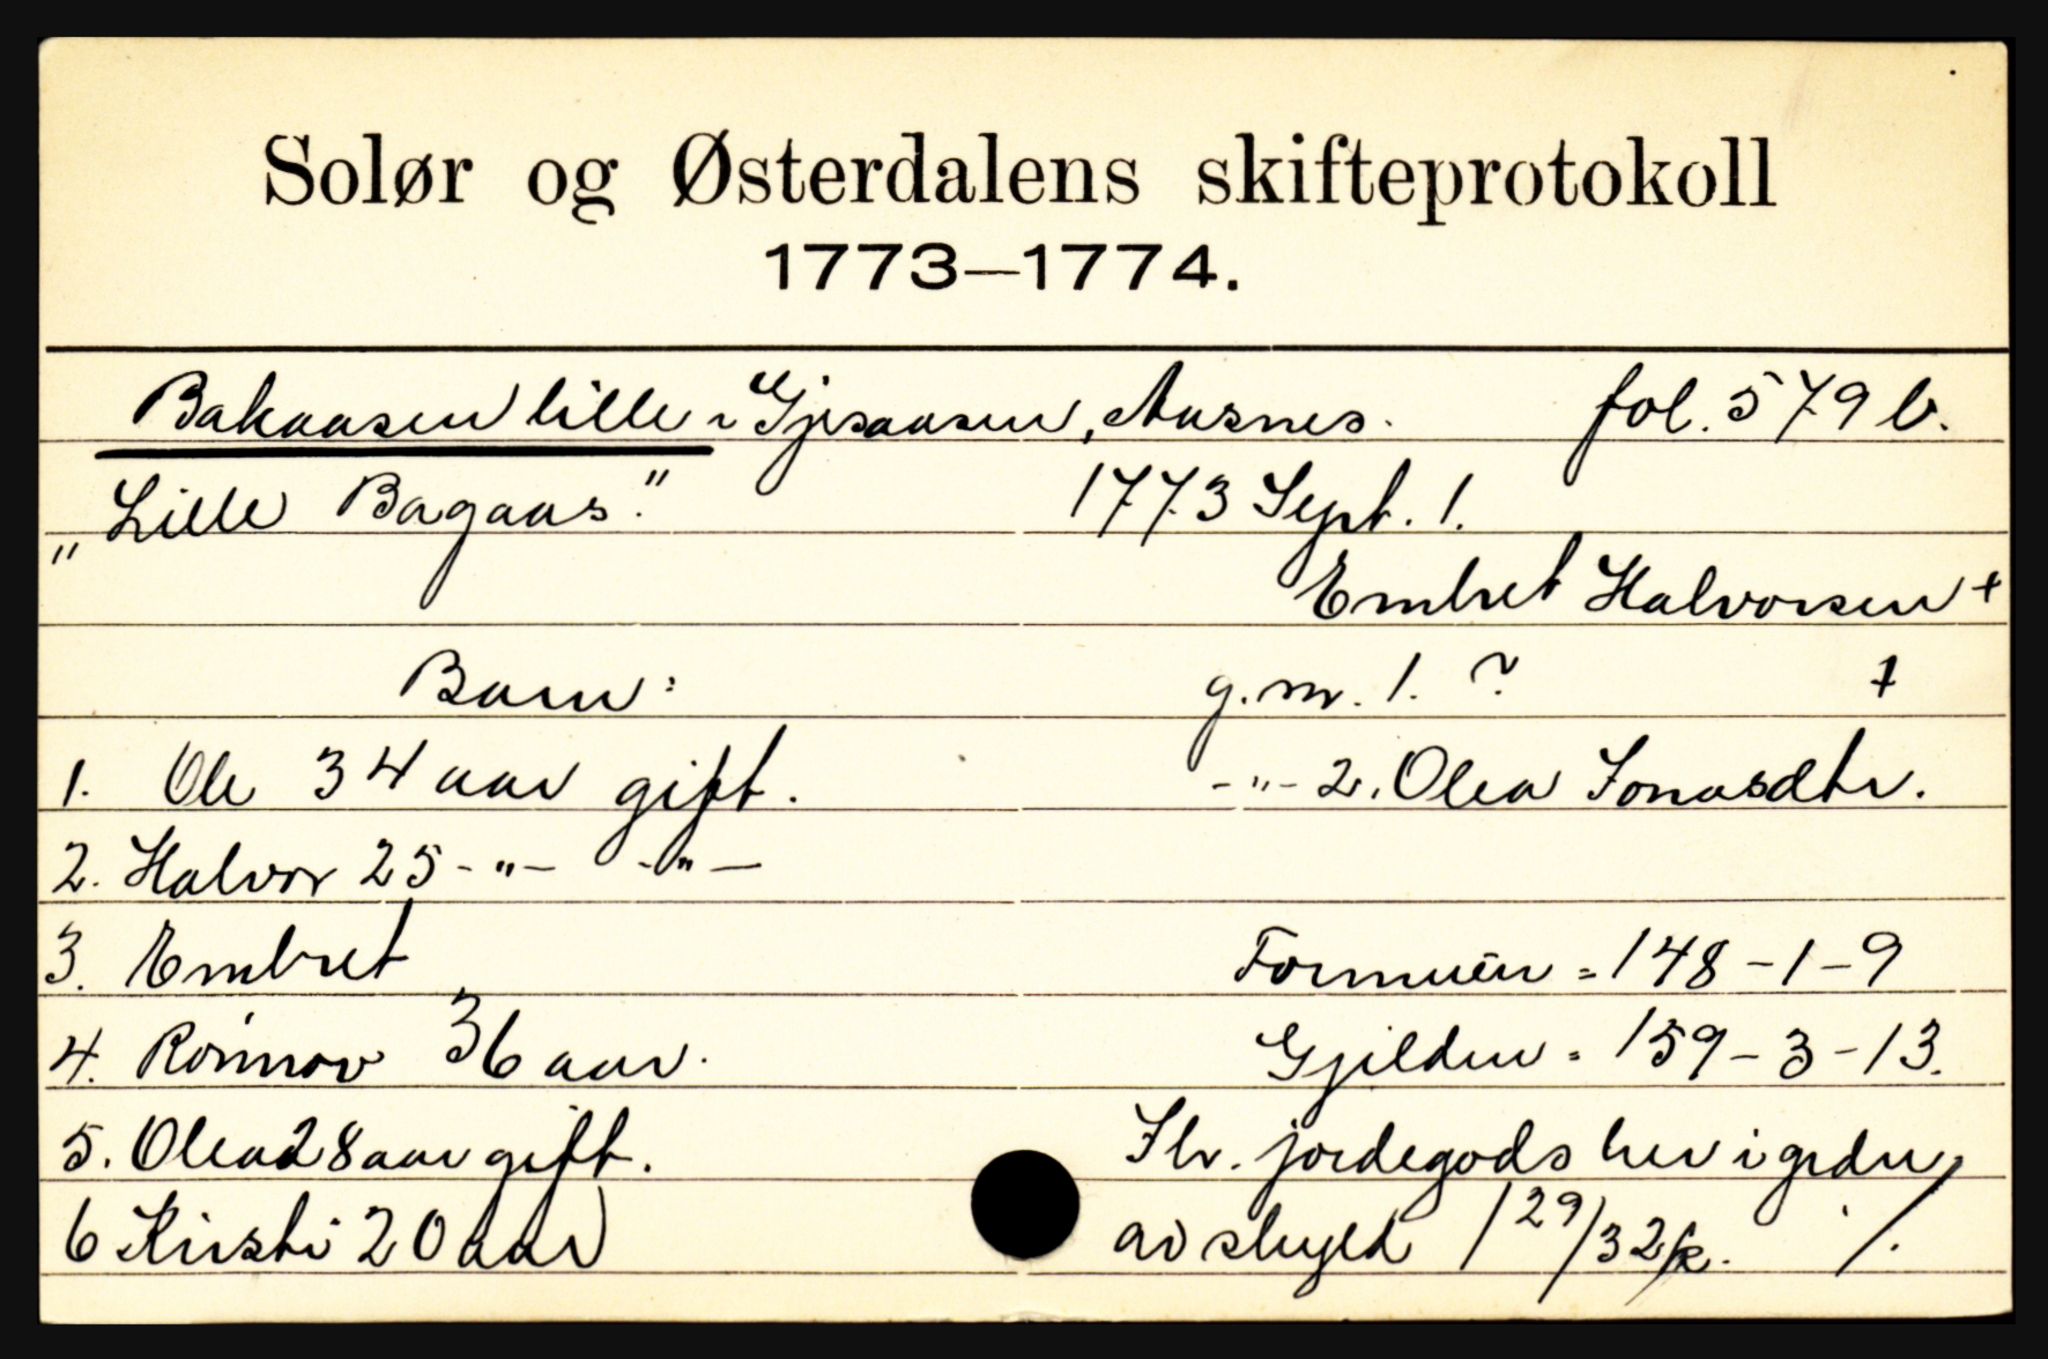 Solør og Østerdalens skifteprotokoll
1773—1774.
Bakaasen lille i Gjesaasen, Aasnes. fol. 579 b.
„Lille Bagaas." 1773 Sept. 1.
Embret Halvorsen +
Barn: g.m. 1. ? +
1. Ole 34 aar gift. -"- 2. Olea Jonasdtr.
2. Halvor 25 -"- -"-
3. Embret Formuen = 148-1-9
4. Rönnov 36 aar. Gjelden = 159-3-13.
5. Olea 28 aar gift. jordegods her i grdn,
6 Kirsti 20 aar av skyld 1 29/32 ./.